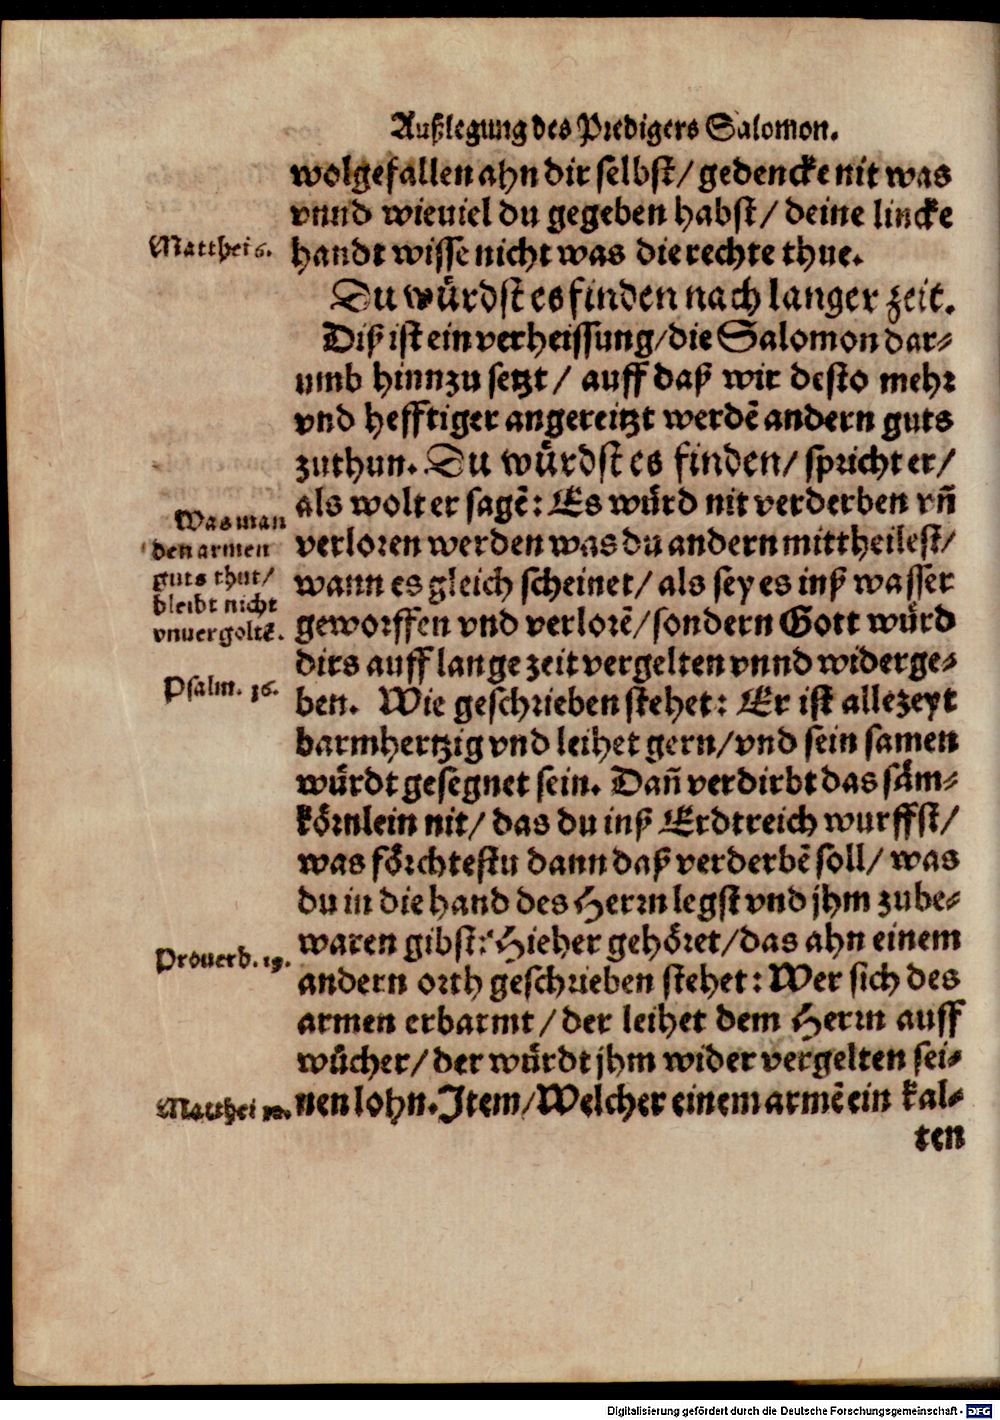 Außlegung des Predigers Salomon.
wolgefallen ahn dir selbst/ gedencke nit was
vnnd wieuiel du gegeben habst/ deine lincke
Matthei 6.
handt wisse nicht was die rechte thue.
Du würdst es finden nach langer zeit.
Diß ist ein verheissung/die Salomon dar⸗
umb hinnzu setzt/ auff daß wir desto mehr
vnd hefftiger angereitzt werdẽ andern guts
zuthun. Du würdst es finden/ spricht er/
als wolt er sagẽ: Es würd nit verderben vñ
Was man
den armen
guts thut/
bleibt nicht
vnuergoltẽ.
verloren werden was du andern mittheilest/
wann es gleich scheinet/ als sey es inß wasser
geworffen vnd verlorẽ/sondern Gott würd
dirs auff lange zeit vergelten vnnd widerge⸗
Psalm. 36.
ben. Wie geschrieben stehet: Er ist allezeyt
barmhertzig vnd leihet gern/vnd sein samen
würdt gesegnet sein. Dañ verdirbt das säm⸗
körnlein nit/ das du inß Erdtreich wurffst/
was förchtestu dann daß verderbẽ soll/ was
du in die hand des Herrn legst vnd jhm zube⸗
waren gibst? Hieher gehöret/das ahn einem
Prouerb. 19.
andern orth geschrieben stehet: Wer sich des
armen erbarmt/der leihet dem Herrn auff
wůcher/der würdt jhm wider vergelten sei⸗
Matthei 10.
nen lohn. Item/Welcher einem armẽ ein kal⸗
ten
Digitalisierung gefördert durch die Deutsche Forschungsgemeinschaft - DFG